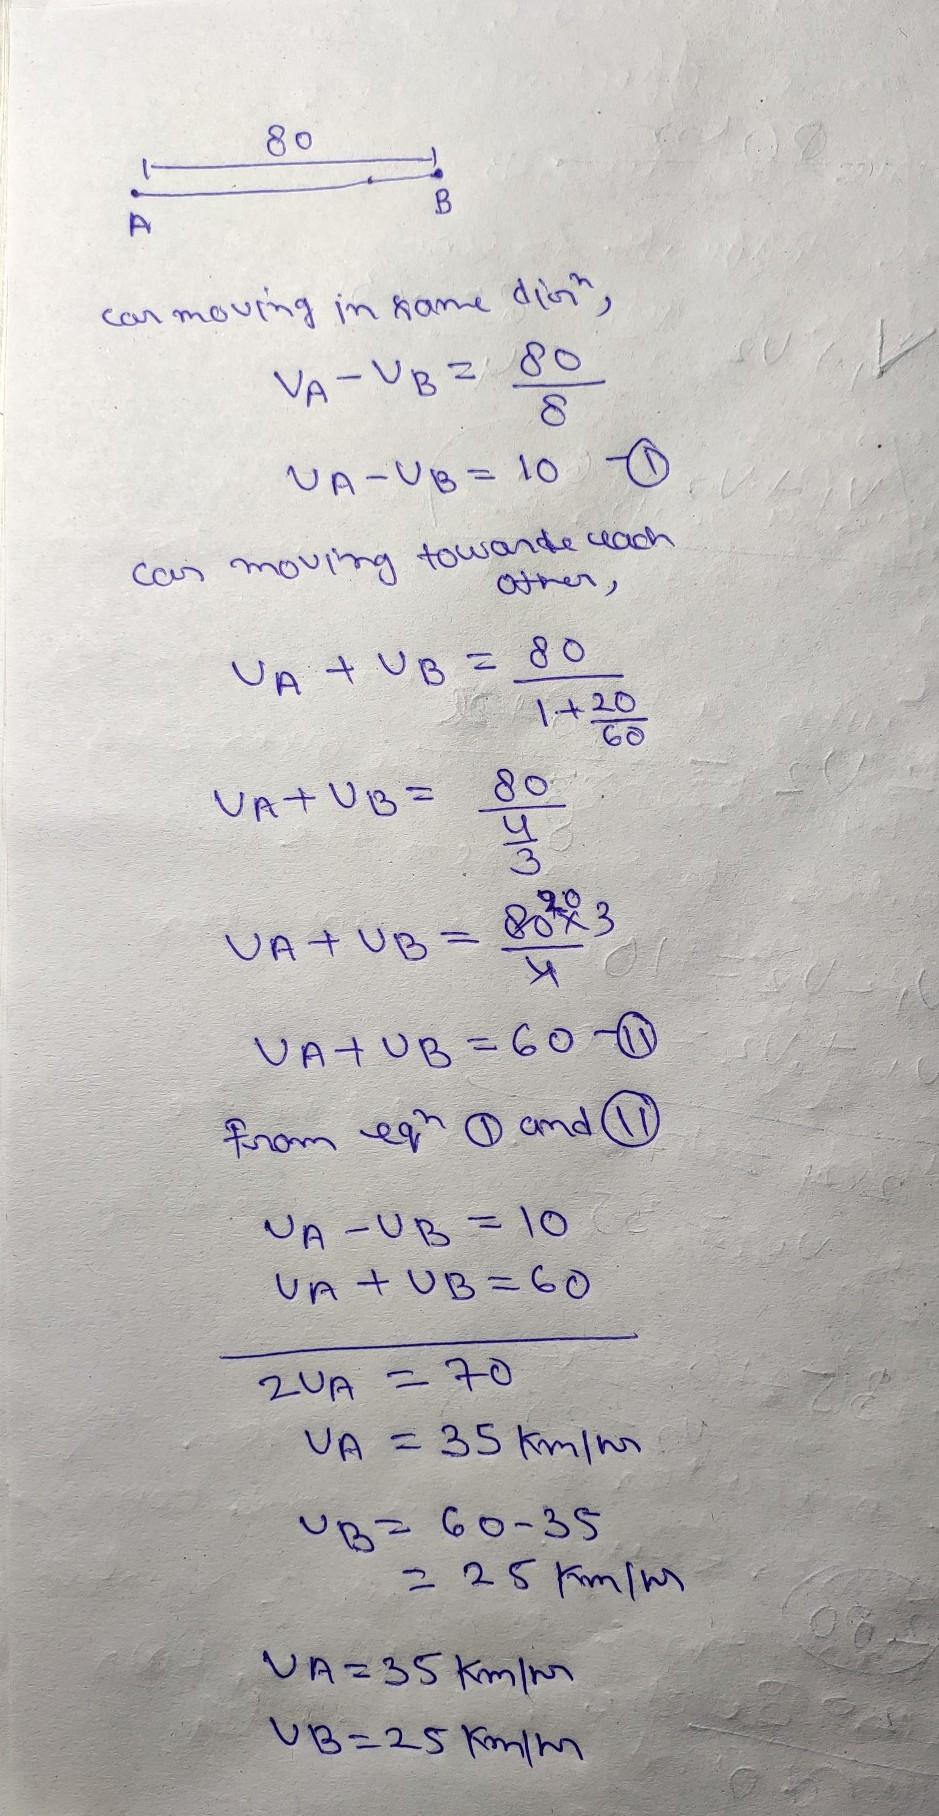 80
A B
car moving in same dirⁿ,
VA - VB = 80/8
VA - VB = 10 - ①
car moving towards each
other,
VA + VB = 80/(1 + 20/60)
VA + VB = 80/(4/3)
VA + VB = 80 20 × 3/4
VA + VB = 60 - ⑪
From eqⁿ ① and ⑪
VA - VB = 10
VA + VB = 60
2VA = 70
VA = 35 Km/hr
VB = 60 - 35
= 25 Km/hr
VA = 35 Km/hr
VB = 25 Km/hr